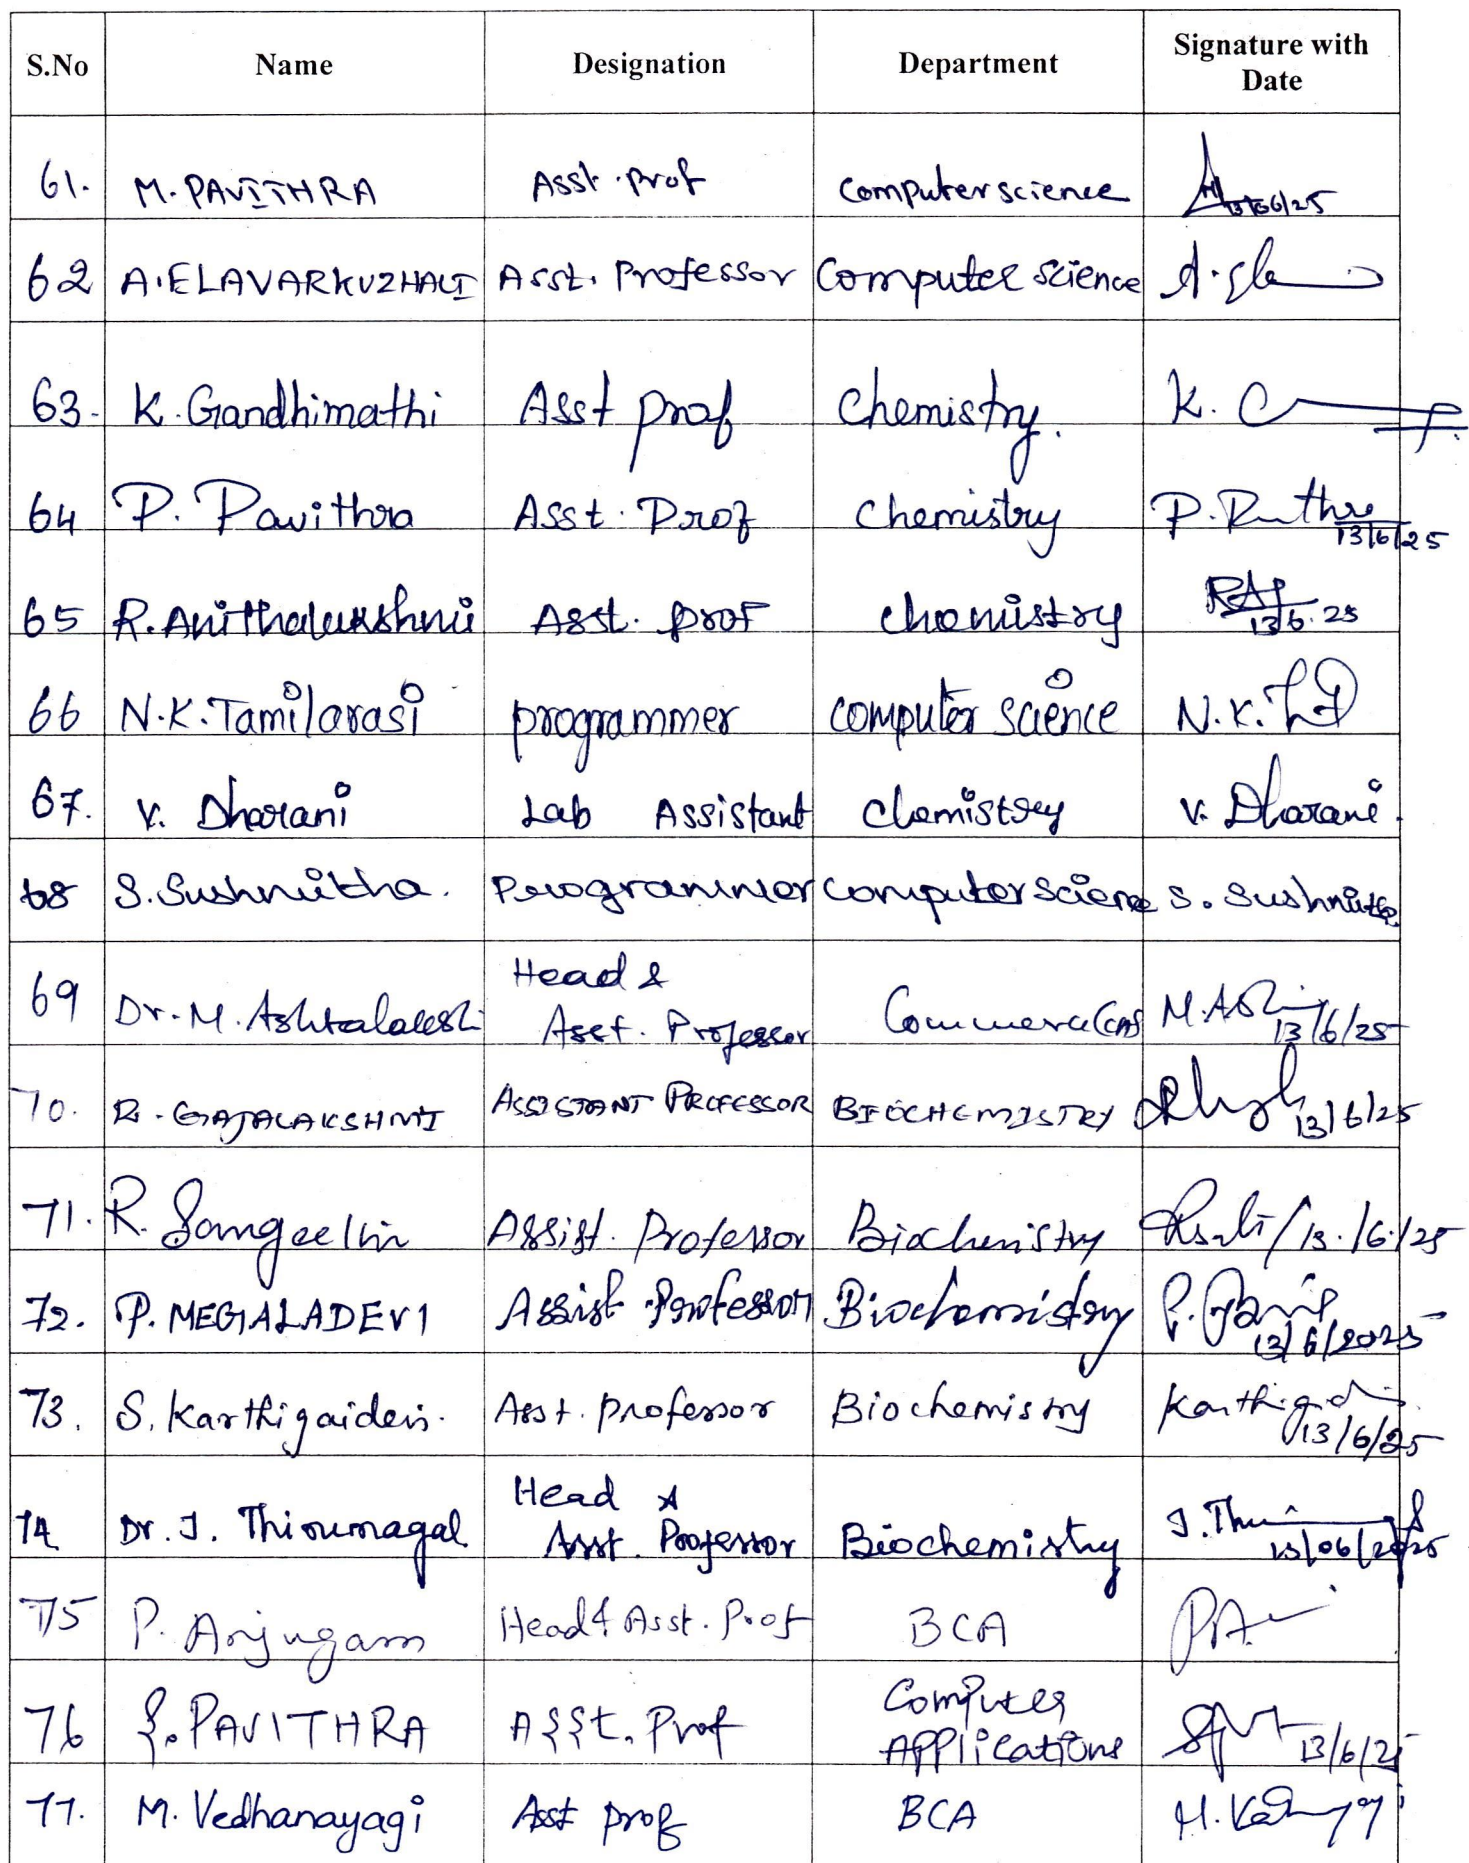 S.No Name Designation Department Signature with Date
61. M. PAVITHRA Asst. prof Computer science 13/06/25
62 A. ELAVARKUZHALI Asst. Professor Computer science
63. K. Gandhimathi Asst prof Chemistry. K.
64 P. Pavithra Asst. Prof Chemistry 13/6/25
65 R. Anithalakshmi Asst. prof chemistry 13.6.25
66 N.K. Tamilarasi programmer computer science N.K.
67. V. Dharani Lab Assistant Chemistry V. Dharani
68 S. Sushmitha. Programmer Computer Science S. Sushmitha
69 Dr. M. Ashtalakshmi Head & Asst. Professor Commerce (CAS) 13/6/25
70. R. GAJALAKSHMI ASSISTANT PROFESSOR BIOCHEMISTRY 13/6/25
71. R. Sangeetha Assist. Professor Biochemistry 13/6/25
72. P. MEGALADEVI Assist. Professor Biochemistry 13/6/2025
73. S. Karthigaidevi. Asst. professor Biochemistry 13/6/25
74 Dr. J. Thirumagal Head & Asst. Professor Biochemistry 13/06/2025
75 P. Anjugam Head & Asst. Prof BCA
76 S. PAVITHRA Asst. Prof Computer Applications 13/6/25
77. M. Vedhanayagi Asst prof BCA